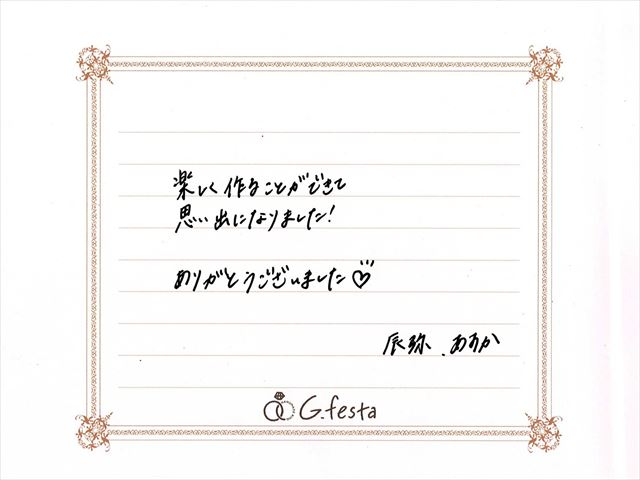 楽しく作ることができて
思い出になりました!
ありがとうございました♡
辰弥.あすか
G.festa